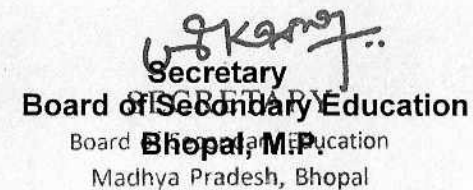 Secretary
SECRETARY
Board of Secondary Education
Board of Secondary Education
Bhopal, M.P.
Madhya Pradesh, Bhopal